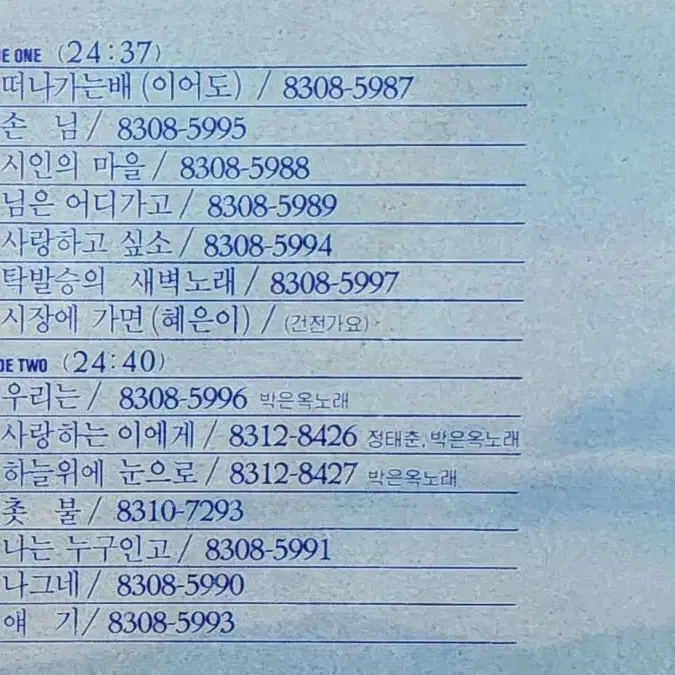 DE ONE (24:37)
떠나가는배 (이어도) / 8308-5987
손 님 / 8308-5995
시인의 마을 / 8308-5988
님은 어디가고 / 8308-5989
사랑하고 싶소 / 8308-5994
탁발승의 새벽노래 / 8308-5997
시장에 가면 (혜은이) / (건전가요)
DE TWO (24:40)
우리는 / 8308-5996 박은옥노래
사랑하는 이에게 / 8312-8426 정태춘, 박은옥노래
하늘위에 눈으로 / 8312-8427 박은옥노래
촛 불 / 8310-7293
나는 누구인고 / 8308-5991
나그네 / 8308-5990
얘 기 / 8308-5993